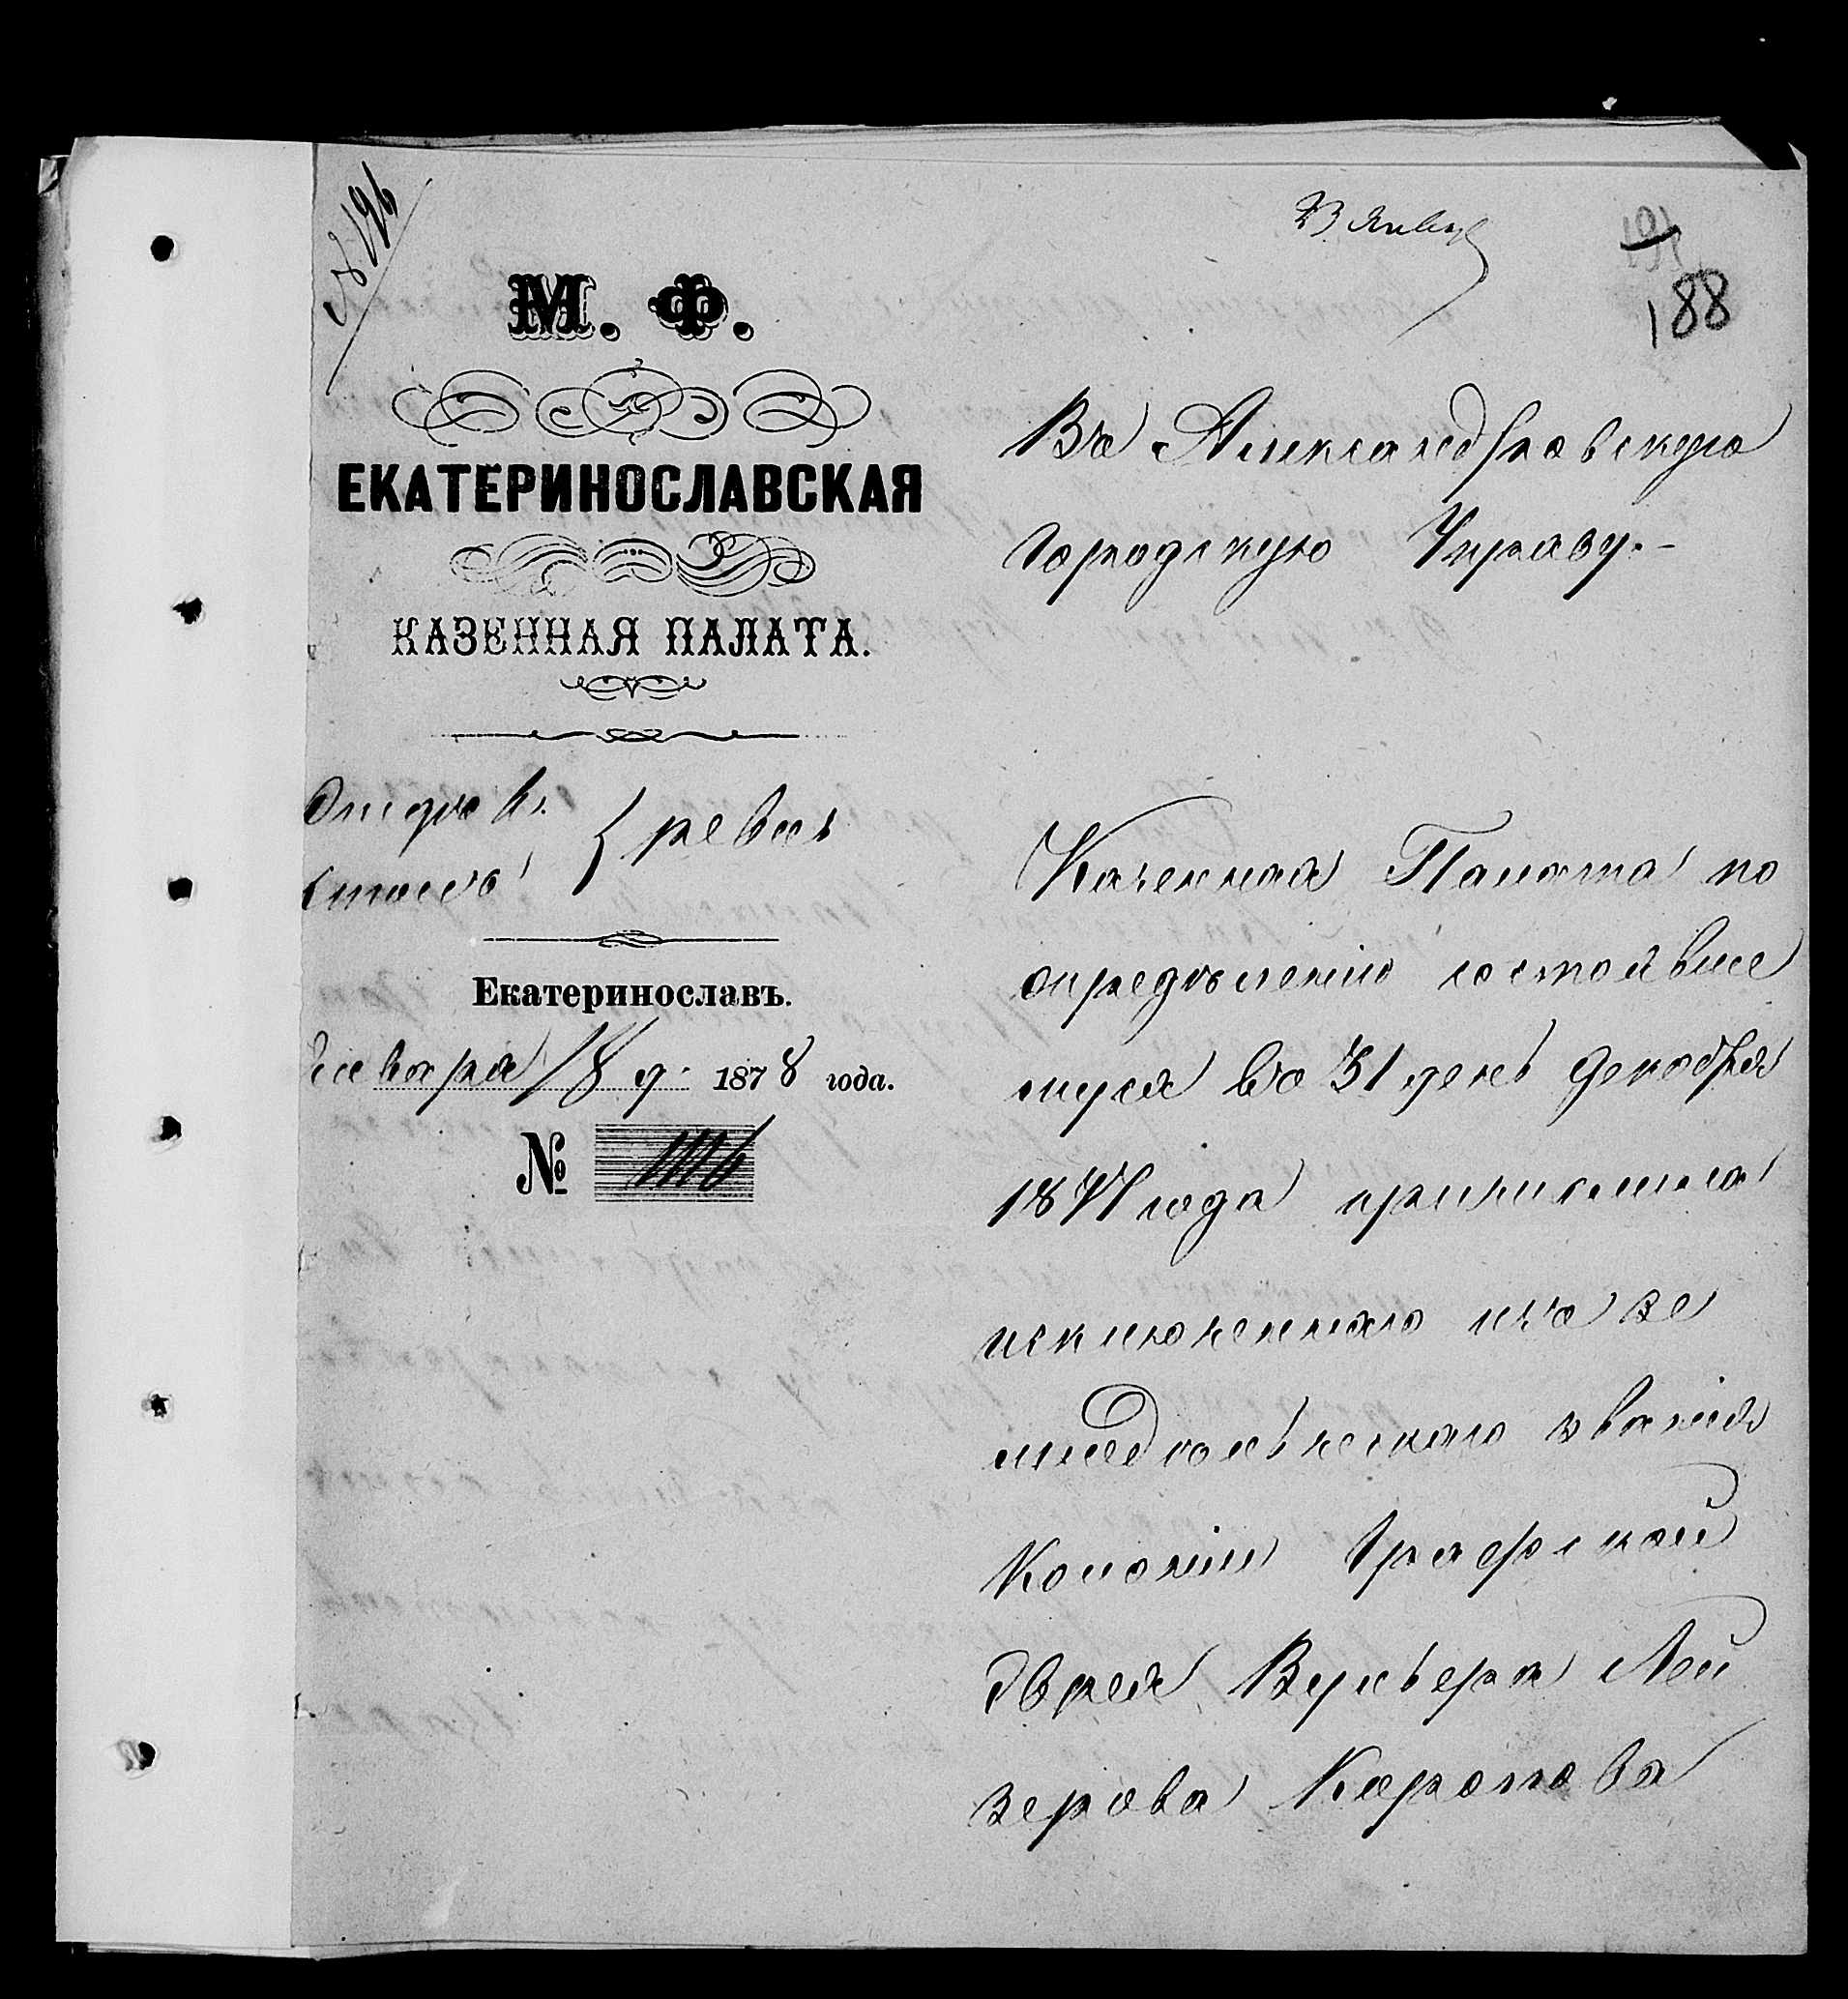 № 196
23 Январ
191
188
М. Ф.
ЕКАТЕРИНОСЛАВСКАЯ
КАЗЕННАЯ ПАЛАТА.
столъ
ревиз
Екатеринославъ.
Января 18 д. 1878 года.
№ 1116
Въ Александровскую
Городскую Управу.-
Казенная Палата по
определенію состоявше
муся въ 31 день Декабря
1877 года причислила
исключеннаго изъ зе
мледельческаго званія
Колоніи Графской
Еврея Вульфа Лей
зерова